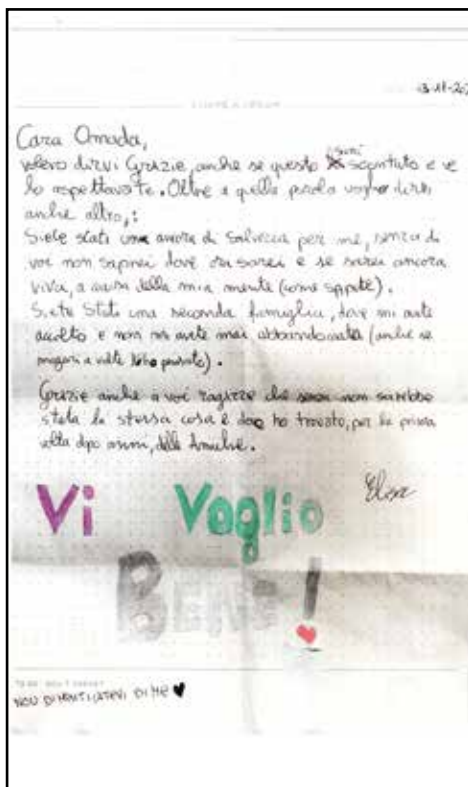 Cara Omada,
volevo dirvi Grazie, anche se questo sarà scontato e ve
lo aspettavate. Oltre a quella parola voglio dirvi
anche altro,:
Siete stati una ancora di Salvezza per me, senza di
voi non saprei dove ora sarei e se sarei ancora
viva, a causa della mia mente (come sapete).
Siete Stati una seconda famiglia, dove mi avete
accolto e non mi avete mai abbandonata (anche se
magari a volte l'ho pensato).
Grazie anche a voi ragazze che non sarebbe
stata la stessa cosa e ho trovato, per la prima
volta dopo anni, delle Amiche.
Elisa
Vi Voglio
BENE!
NON DIMENTICATEVI DI ME